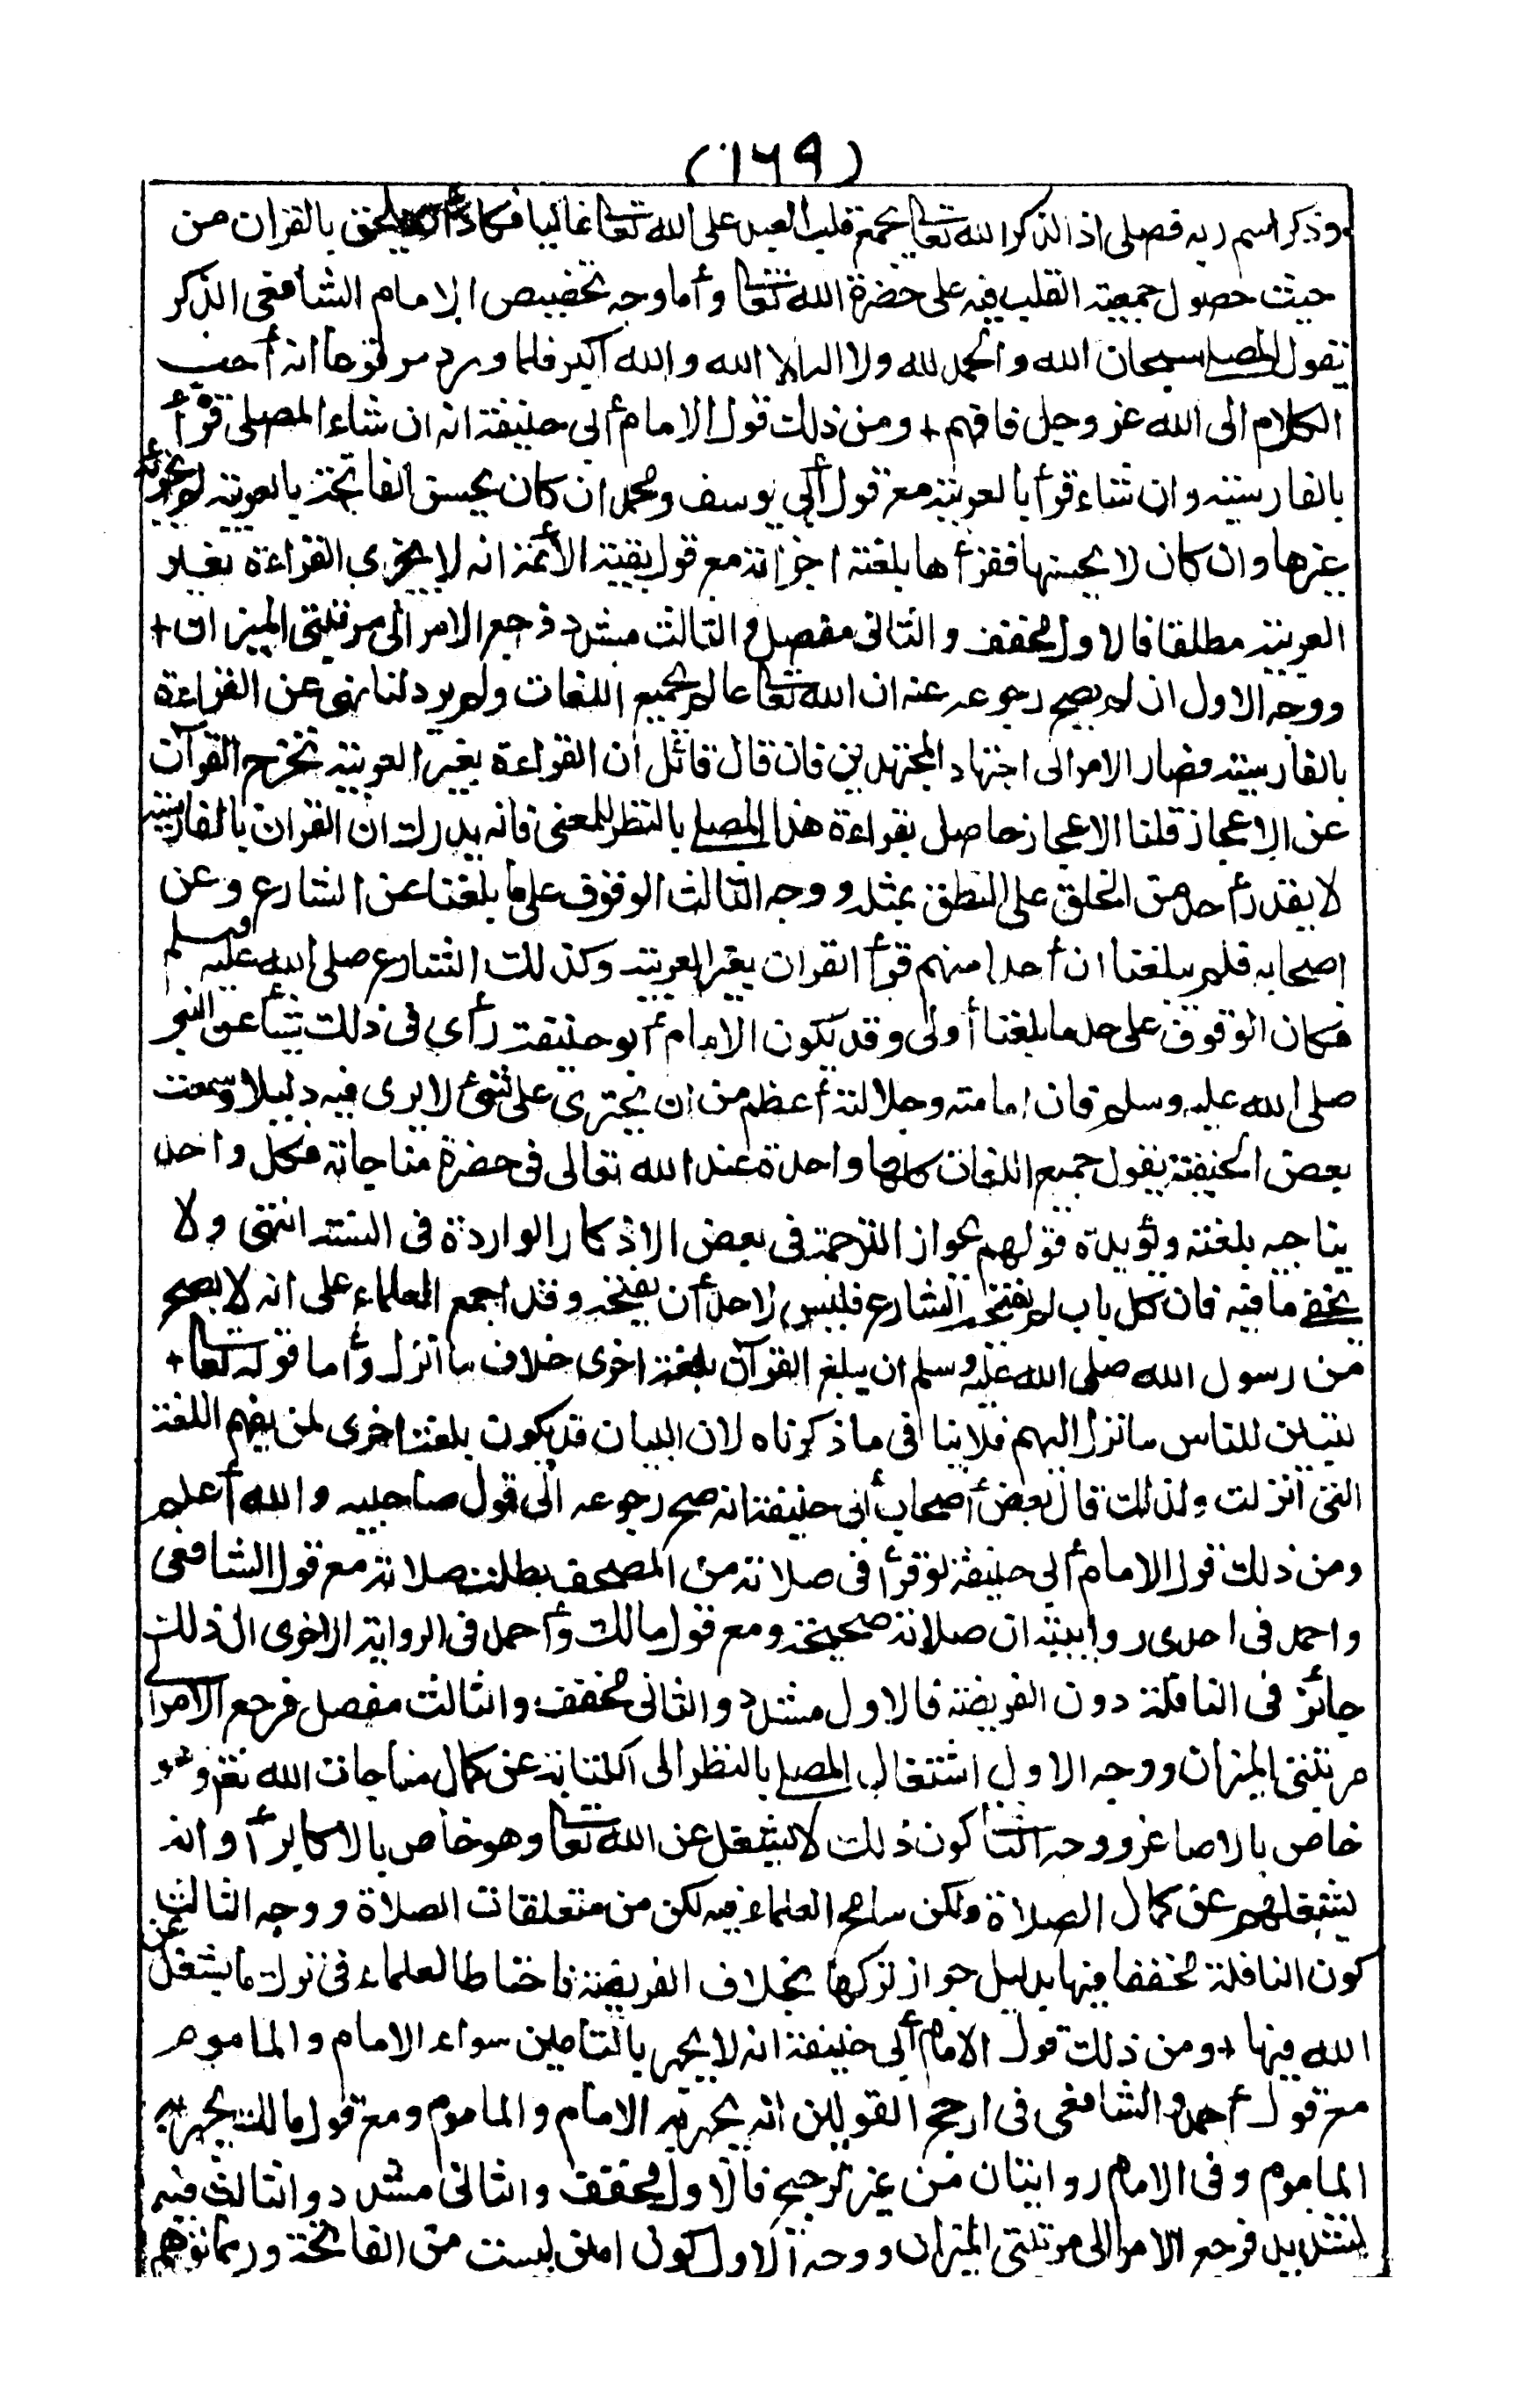 (١٦٩)
وذكر اسم ربه فصلى اذ الذكر الله تعا يجمع قلب العبد على الله تعا غالبا فكاد أن يلحق بالقران من
حيث حصول جمعية القلب فيه على حضرة الله تعا وأما وجه تخصيص الامام الشافعى الذكر
بقول المصلى سبحان الله والحمد لله ولا اله الا الله والله أكبر فلما ورد مرفوعا انه أحب
الكلام الى الله عز وجل فافهم + ومن ذلك قول الامام أبى حنيفة انه ان شاء المصلى قرأ
بالفارسية وان شاء قرأ بالعربية مع قول أبى يوسف ومحمد ان كان يحسن الفاتحة بالعربية لم يجزئه
بغيرها وان كان لا يحسنها فقرأها بلغته اجزأته مع قول بقية الأئمة انه لا يجزى القراءة بغير
العربية مطلقا فالاول مخفف والثانى مفصل والثالث مشدد فرجع الامر الى مرتبتى الميزان +
ووجه الاول ان لم يصح رجوعه عنه ان الله تعا عالم بجميع اللغات ولم يرد لنا نهى عن القراءة
بالفارسية فصار الامر الى اجتهاد المجتهدين فان قال قائل ان القراءة بغير العربية تخرج القرآن
عن الاعجاز قلنا الاعجاز حاصل بقراءة هذا المصلى بالنظر للمعنى فانه يدرك ان القران بالفارسية
لا يقدر أحد من الخلق على النطق بمثله ووجه الثالث الوقوف على ما بلغنا عن الشارع وعن
اصحابه فلم يبلغنا ان أحدا منهم قرأ القران بغير العربية وكذلك الشارع صلى الله عليه وسلم
فكان الوقوف على حد ما بلغنا أولى وقد يكون الامام أبو حنيفة رأى فى ذلك شيأ عن النبى
صلى الله عليه وسلم فان امامته وجلالته أعظم من ان يجترى على شئ لا يرى فيه دليلا وسمعت
بعض الحنيفة يقول جميع اللغات كلها واحدة عند الله تعالى فى حضرة مناجاته فكل واحد
يناجيه بلغته ويؤيده قولهم بجواز الترجمة فى بعض الاذكار الواردة فى السنة انتهى ولا
يخفى ما فيه فان كل باب لم يفتحه الشارع فليس لاحد أن يفتحه وقد اجمع العلماء على انه لا يصح
من رسول الله صلى الله عليه وسلم ان يبلغ القرآن بلغة اخرى خلاف ما انزل وأما قوله تعا +
لتبين للناس ما نزل اليهم فلا ينافى ما ذكرناه لان البيان قد يكون بلغة اخرى لمن يفهم اللغة
التى انزلت ولذلك قال بعض أصحاب أبى حنيفة انه صح رجوعه الى قول صاحبيه والله أعلم
ومن ذلك قول الامام أبى حنيفة لو قرأ فى صلاته من المصحف بطلت صلاته مع قول الشافعى
واحمد فى احدى روايتيه ان صلاته صحيحة ومع قول مالك وأحمد فى الرواية الاخرى ان ذلك
جائز فى النافلة دون الفريضة فالاول مشدد والثانى مخفف والثالث مفصل فرجع الامر الى
مرتبتى الميزان ووجه الاول اشتغال المصلى بالنظر الى الكتابة عن كمال مناجات الله تعا وهو
خاص بالاصاغر ووجه الثا كون ذلك لا يشغل عن الله تعا وهو خاص بالاكابر أو انه
يشغلهم عن كمال الصلاة ولكن سامح العلماء فيه لكن من متعلقات الصلاة ووجه الثالث
كون النافلة مخففا فيها بدليل جواز تركها بخلاف الفريضة فاحتاط العلماء فى ترك ما يشغل عن
الله فيها + ومن ذلك قول الامام أبى حنيفة انه لا يجهر بالتامين سواء الامام والماموم
مع قول أحمد والشافعى فى ارجح القولين انه يجهر به الامام والماموم ومع قول مالك يجهر به
الماموم وفى الامام روايتان من غير ترجيح فالاول مخفف والثانى مشدد والثالث فيه
تشديد فرجع الامر الى مرتبتى الميزان ووجه الاول كون امين ليست من الفاتحة وربما توهم